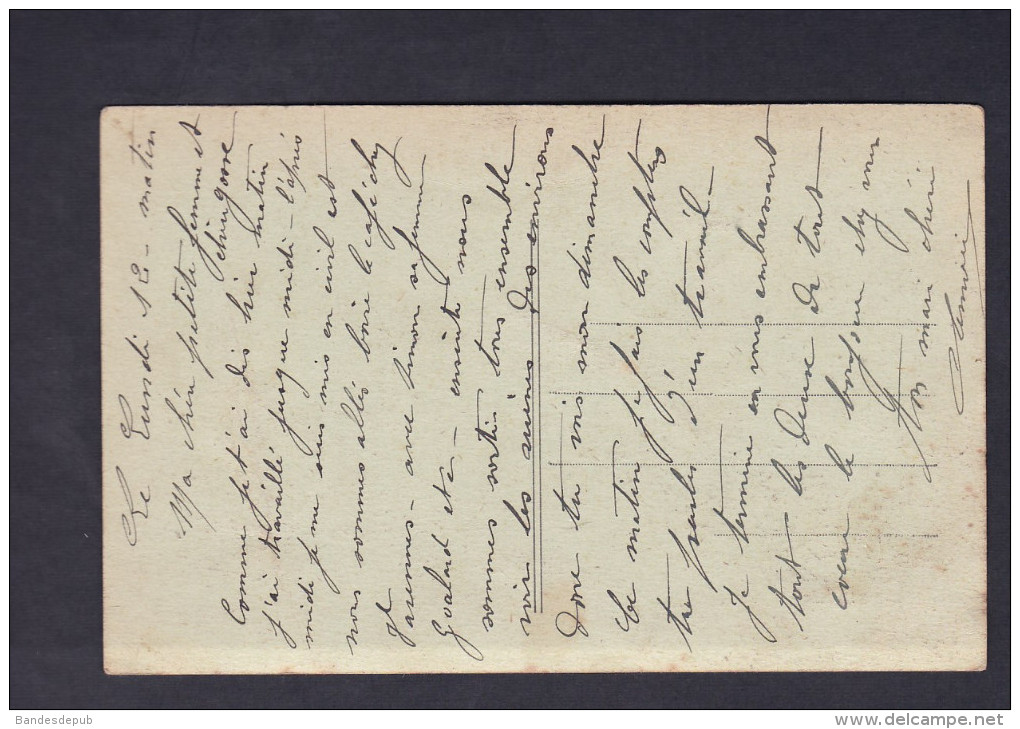 Le Lundi 12 - matin
Ma chère petite femme et
chingosse
Comme je t'ai dis hier matin
j'ai travaillé jusque midi - l'après
midi je me suis mis en civil et
nous sommes allés boire le café chez
avec Simon sa femme
Goalard etc - ensuite nous
sommes sortis tous ensemble
voir les ruines des environs
Donc tu vois mon dimanche
Le matin je fais les comptes
tu parles d'un travail -
Je termine en vous embrassant
tout les deux de tout
cœur le
Ton mari chéri
Bandesdepub
www.delcampe.net